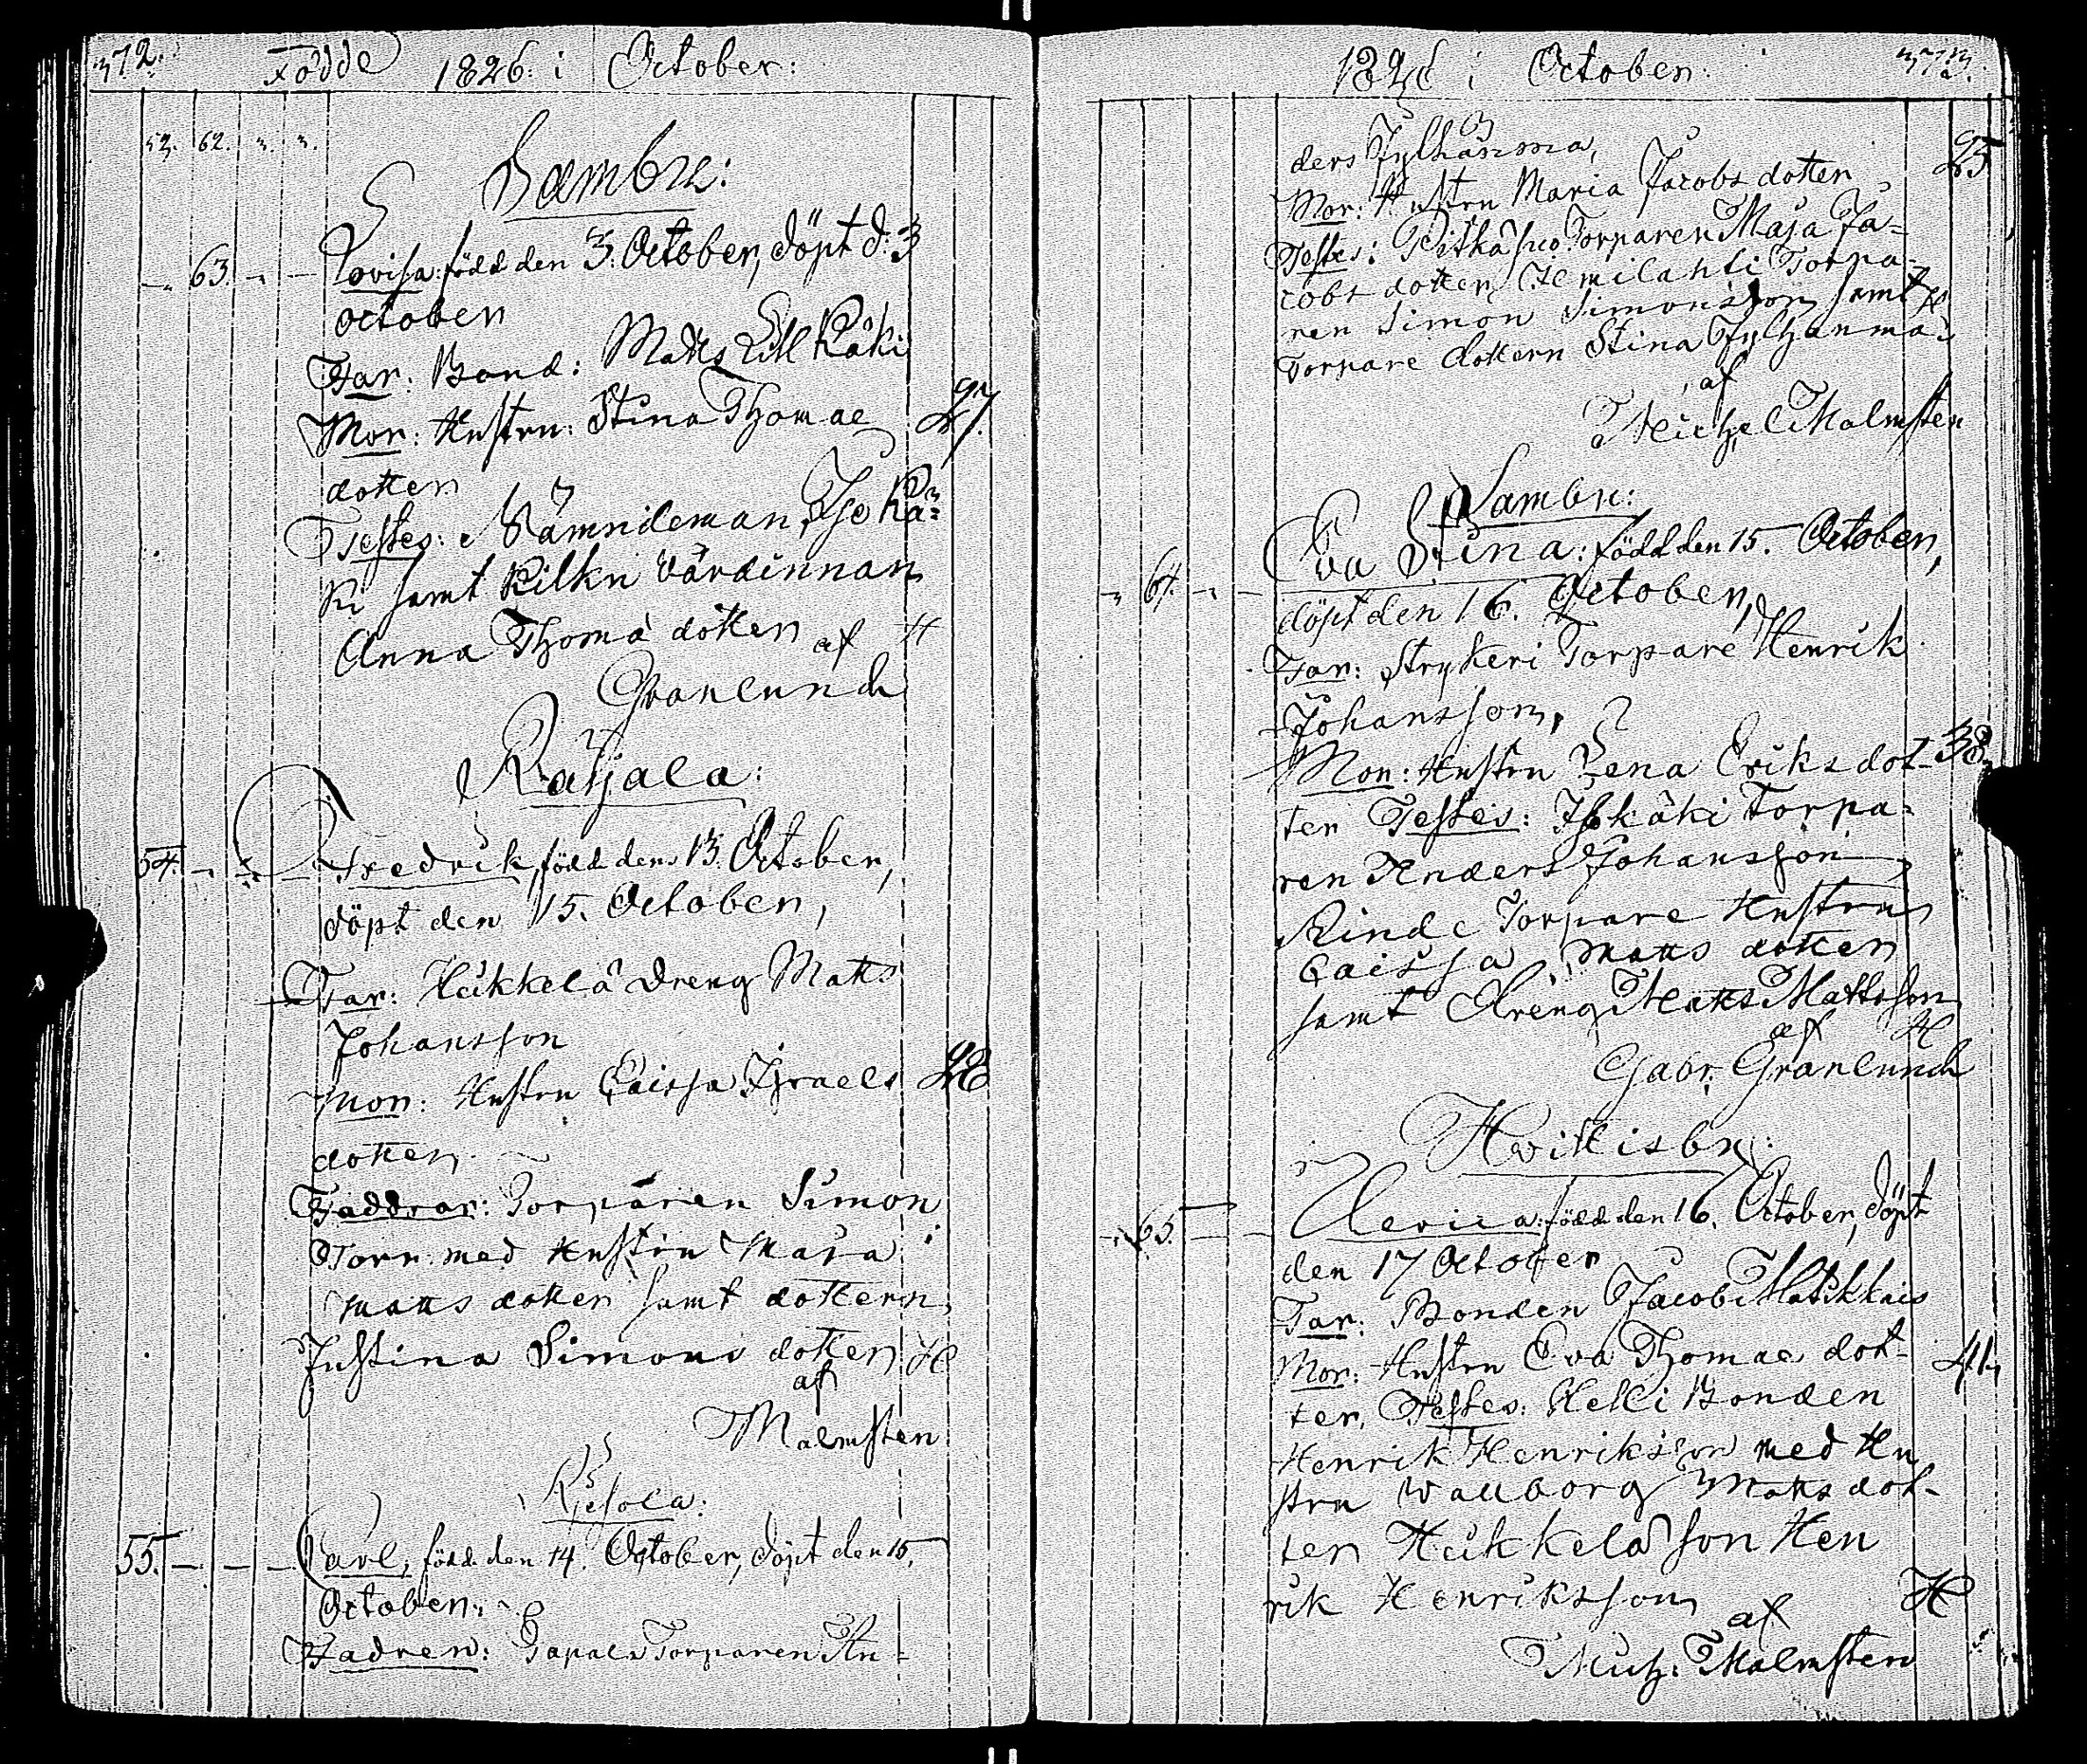 372.
Födde 1826. i October:
53. 62. n. n.
Sambu:
63. Lovisa: född den 3. October, döpt d: 3
October
Far: Bond: Matts Lill Käki
Mor: Hustru: Stina Thomae 27.
dotter
Testes: Nämndeman Iso Kä=
ki samt Kilkn Värdinnan
Anna Thomä dotter H
af
Granlund
Ratjala:
54. Fredrik, född den 13. October,
döpt den 15. October,
Far: Hukkela Dreng Matts
Johansson
Mor: Hustru Caissa Israels 28
dotter
Faddrar: Torparen Simon
Torn: med Hustru Maja
Matts dotter samt dottern
Justina Simons dotter H
af
Malmsten
55. Carl, född den 14. October, döpt den 15.
October.
Fadren: Papals Torparen An=
1826 i October: 373.
ders Jylhänma,
Mor: Hustru Maria Jacobs dotter 25
Testes: Torparen Maja Ja=
cobs dotter, Hemilahti Torpa=
ren Simon Simonsson samt H
Torpare dottern Stina Jylhänmä
af
Michel Malmsten
Sambu:
64. Eva Stina: född den 15. October,
döpt den 16. October,
Far: Strykeri Torpare Henrik
Johansson,
Mor: Hustru Lena Eriks dot- 38.
ter Testes: Isokäki Torpa=
ren Anders Johansson
Rinde Torpare Hustrun
Caissa Matts dotter
samt Dreng Matts Mattsson
af H
Gabr: Granlund
Hvittisby:
65. Ulerica: född den 16. October, döpt
den 17 October
Far: Bonden Jacob Matikkais
Mor: Hustru Eva Thomae dot- 41,
ter, Testes: Kelli Bonden
Henrik Henriksson med Hu
stru Wallborg Matts dot-
ter Hukkela son Hen
rik Henriksson H
af
Mich: Malmsten